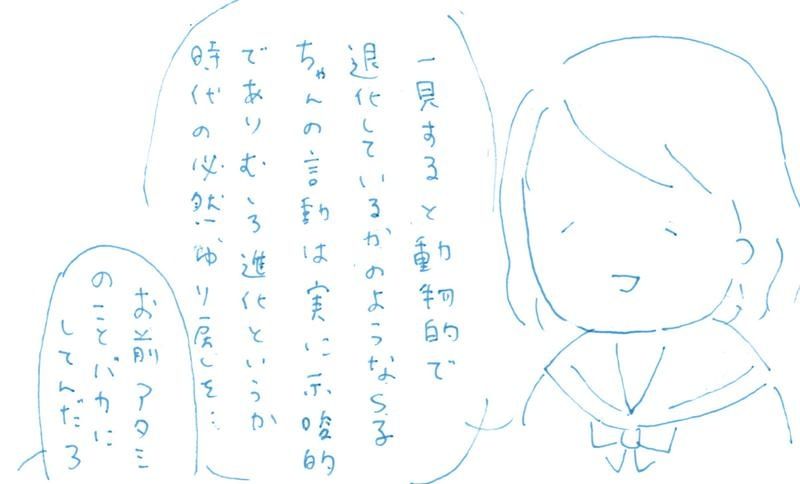 一見すると動物的で
退化しているかのようなる子
ちゃんの言動は実に示唆的
でありむしろ進化というか
時代の必然、ゆり戻しを…
お前アタシ
のことバカに
してんだろ